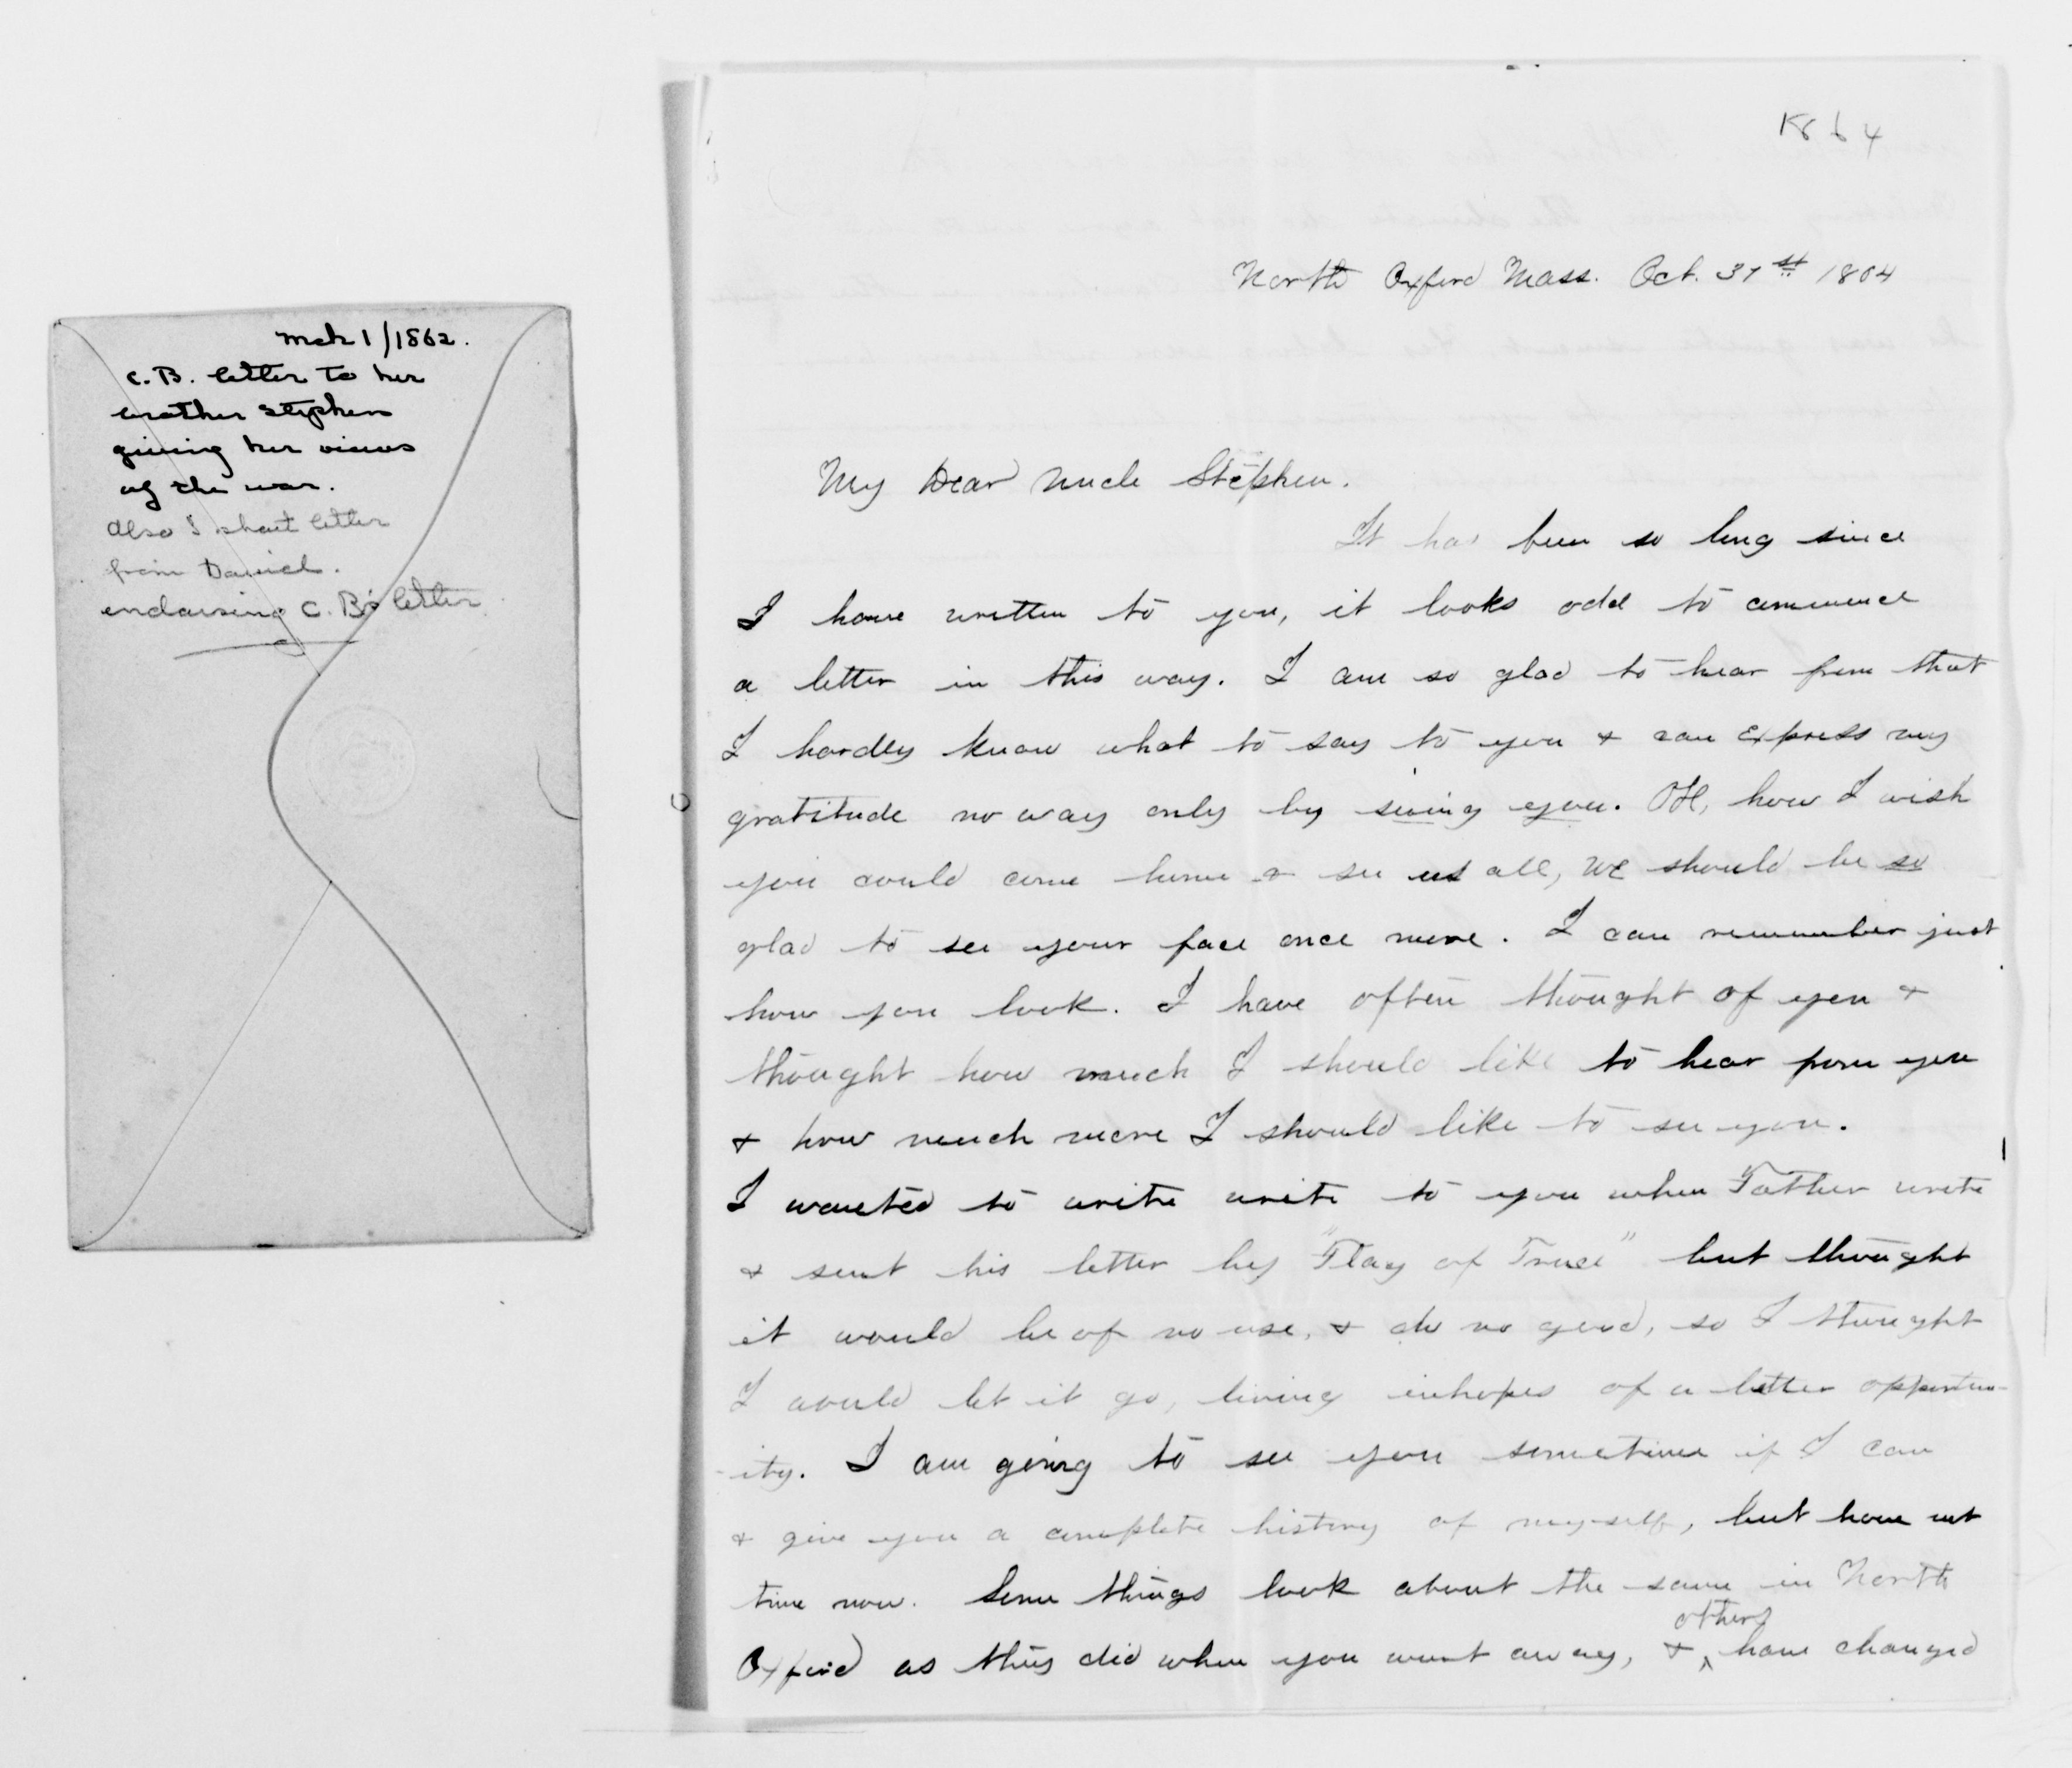 Mch 1/1862.
C. B. letter to her
brother Stephen
giving her views
of the war.
Also 1 short letter
from David.
endorsing C. B's letter
1864
North Oxford Mass. Oct. 31st 1864
My Dear Uncle Stephen.
It has been so long since
I have written to you, it looks odd to commence
a letter in this way. I am so glad to hear from that
I hardly know what to say to you & can express my
gratitude no way only by seeing you. Oh, how I wish
you could come home & see us all, we should be so
glad to see your face once more. I can remember just
how you look. I have often thought of you &
thought how much I should like to hear from you
& how much more I should like to see you.
I wanted to write write to you when Father wrote
& sent his letter by "Flag of Truce" but thought
it would be of no use, & do no good, so I thought
I would let it go, living in hopes of a better opportun-
-ity. I am going to see you sometime if I can
& give you a complete history of myself, but have not
time now. Some things look about the same in North
Oxford as they did when you went away, & others have changed